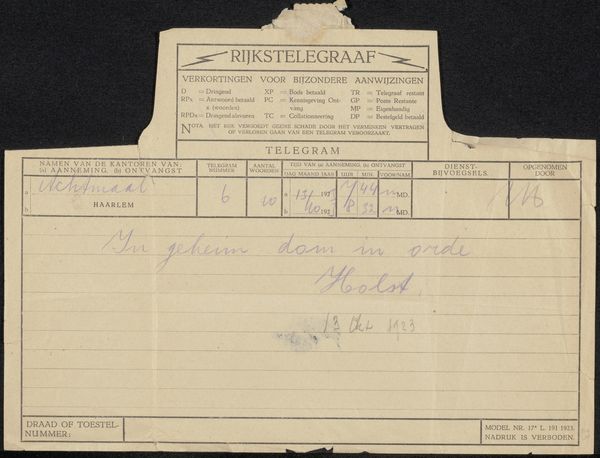 RIJKSTELEGRAAF
VERKORTINGEN VOOR BIJZONDERE AANWIJZINGEN
D = Dringend XP = Bode betaald TR = Telegraaf restant
RPx = Antwoord betaald PC = Kennisgeving Ont- GP = Poste Restante
x (woorden) vangst MP = Eigenhandig
RPDx = Dringend alsvoren TC = Collationneering DP = Bestelgeld betaald
NOTA HET RIJK VERGOEDT GEENE SCHADE DOOR HET VERMINKEN VERTRAGEN
OF VERLOREN GAAN VAN EEN TELEGRAM VEROORZAAKT.
TELEGRAM
NAMEN VAN DE KANTOREN VAN: (a) AANNEMING, (b) ONTVANGST
TELEGRAM NUMMER
AANTAL WOORDEN
TIJD VAN (a) AANNEMING, (b) ONTVANGST
DAG MAAND JAAR UUR MIN. VOOR/NAM.
DIENST- BIJVOEGSELS.
OPGENOMEN DOOR
a Achtmaal 6 10 a 13/ 192 7 44 n MD.
b HAARLEM b /10 192 8 32 n MD.
In geheim dom in orde
Holst.
13 Okt 1923
DRAAD OF TOESTEL-
NUMMER:
MODEL NR. 17* L. 191 1923.
NADRUK IS VERBODEN.